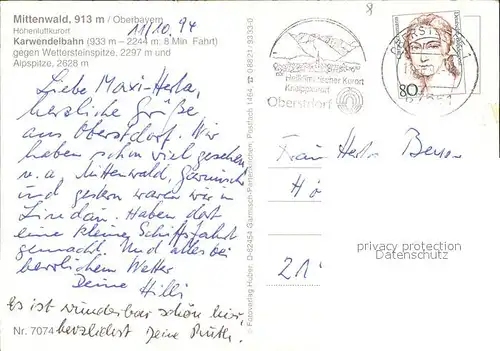 Mittenwald, 913 m / Oberbayern
Höhenluftkurort
Karwendelbahn (933 m – 2244 m, 8 Min. Fahrt)
gegen Wettersteinspitze, 2297 m und
Alpspitze, 2628 m
11/10. 94
Liebe Maxi-Herta,
herzliche Grüße
aus Oberstdorf. Wir
haben schon viel gesehen
u.a. Mittenwald, Garmisch
und gestern waren wir in
Lindau. Haben dort
eine kleine Schiffsfahrt
gemacht. Und alles bei
herrlichem Wetter
Deine Hilli
Es ist wunderbar schön hier
herzlichst Deine Ruth!
Nr. 7074
© Fotoverlag Huber, D-82454 Garmisch-Partenkirchen, Postfach 1464 ☎ 08821-9333-0
Heilklimatischer Kurort
Kneippkurort
Oberstdorf
OBERSTDORF 1
87561
80
Frau Herta
Hö
21
privacy protection
Datenschutz